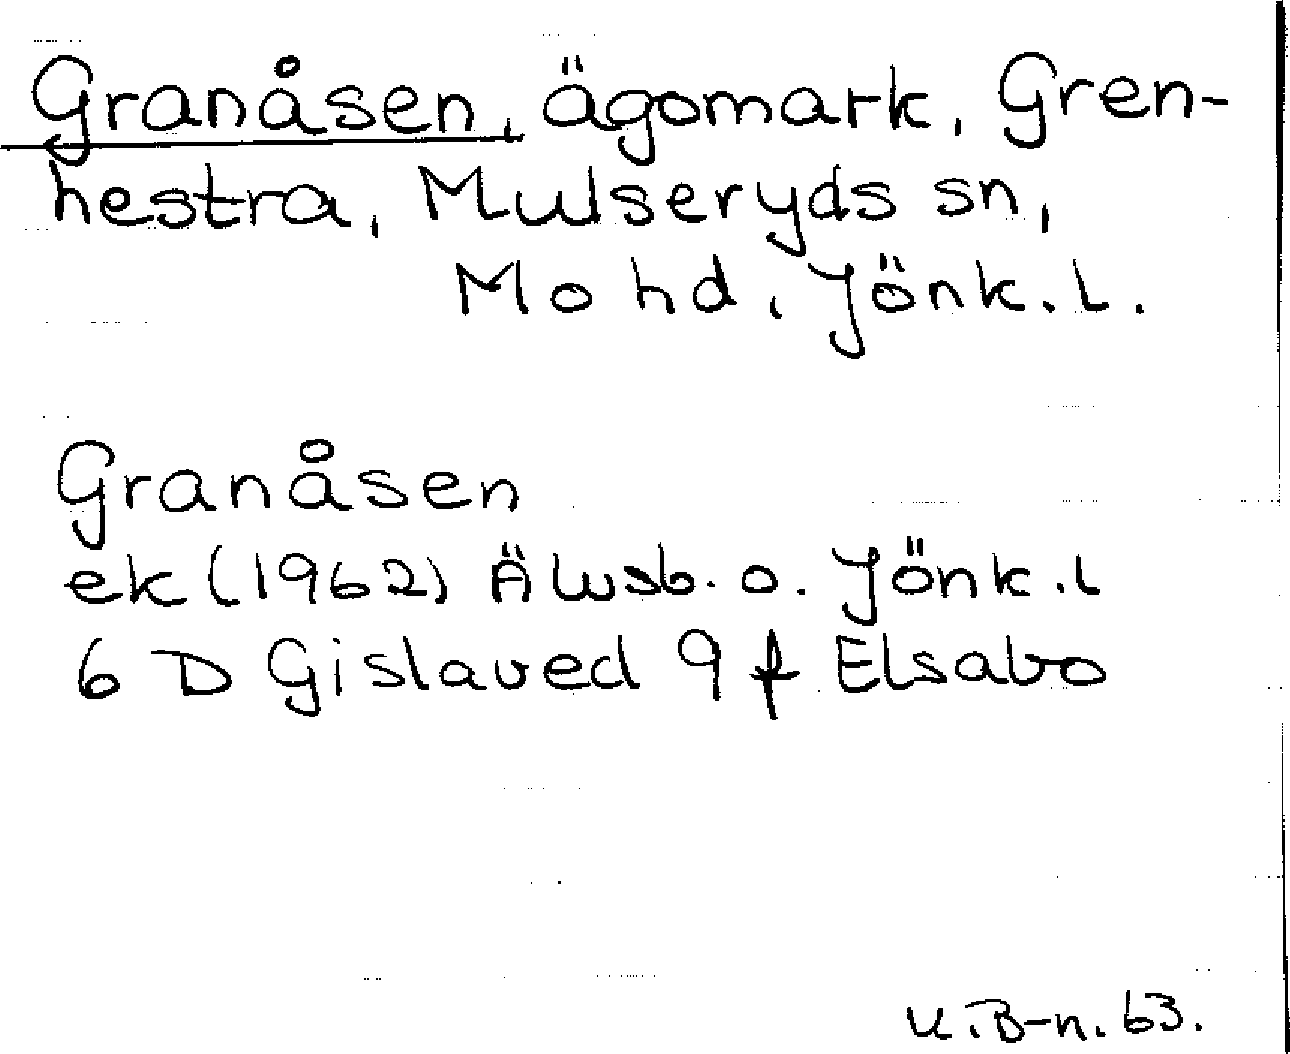 Granåsen, ägomark, Gren-
hestra, Mulseryds sn,
Mo hd, Jönk.l.
Granåsen
ek (1962) Älvsb. o. Jönk.l
6 D Gislaved 9 f Elsabo
K.B-n. 63.